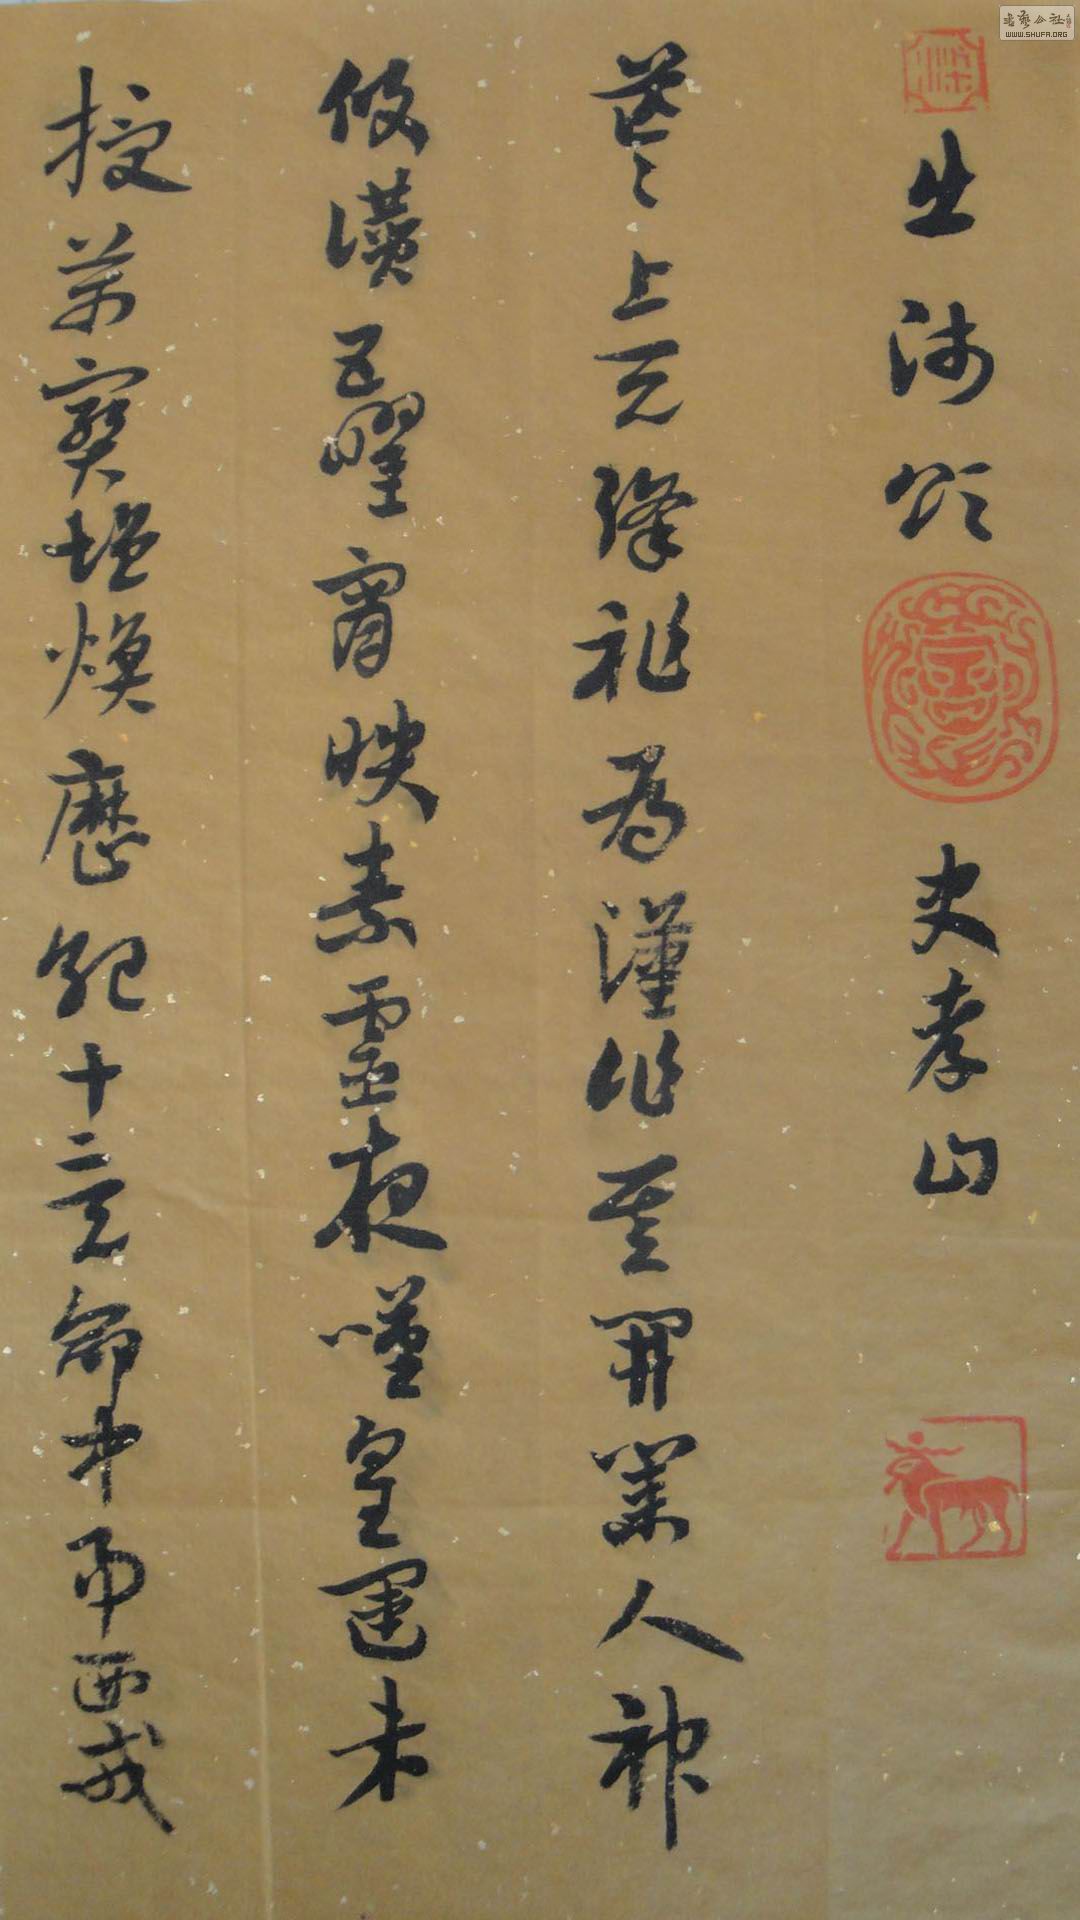 書藝公社
WWW.SHUFA.ORG
出師頌 史孝山
芒々上天降祚為漢作基開業人神
攸讚五曜宵映素靈夜嘆皇運未
授萬寶增煥歷紀十二天命中易西戎